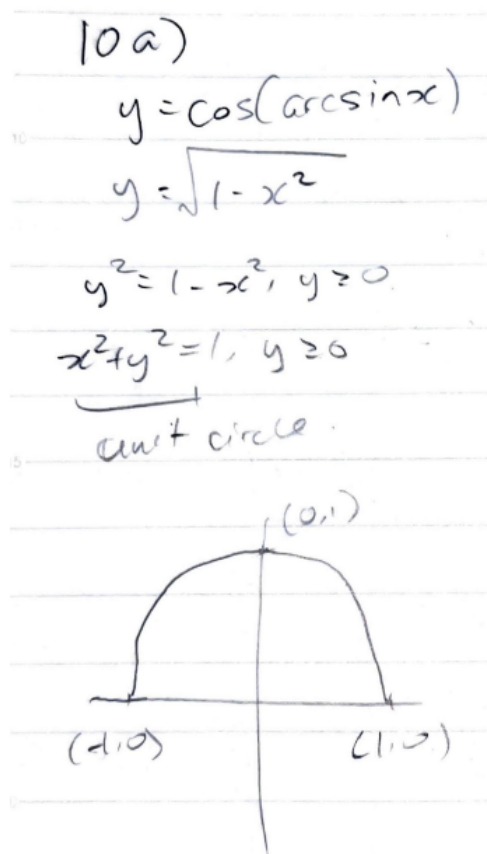 10 a)
y = cos(arcsinx)
y = √1-x²
y² = 1-x², y ≥ 0
x²+y² = 1, y ≥ 0
unit circle.
(0,1)
(-1,0) (1,0)